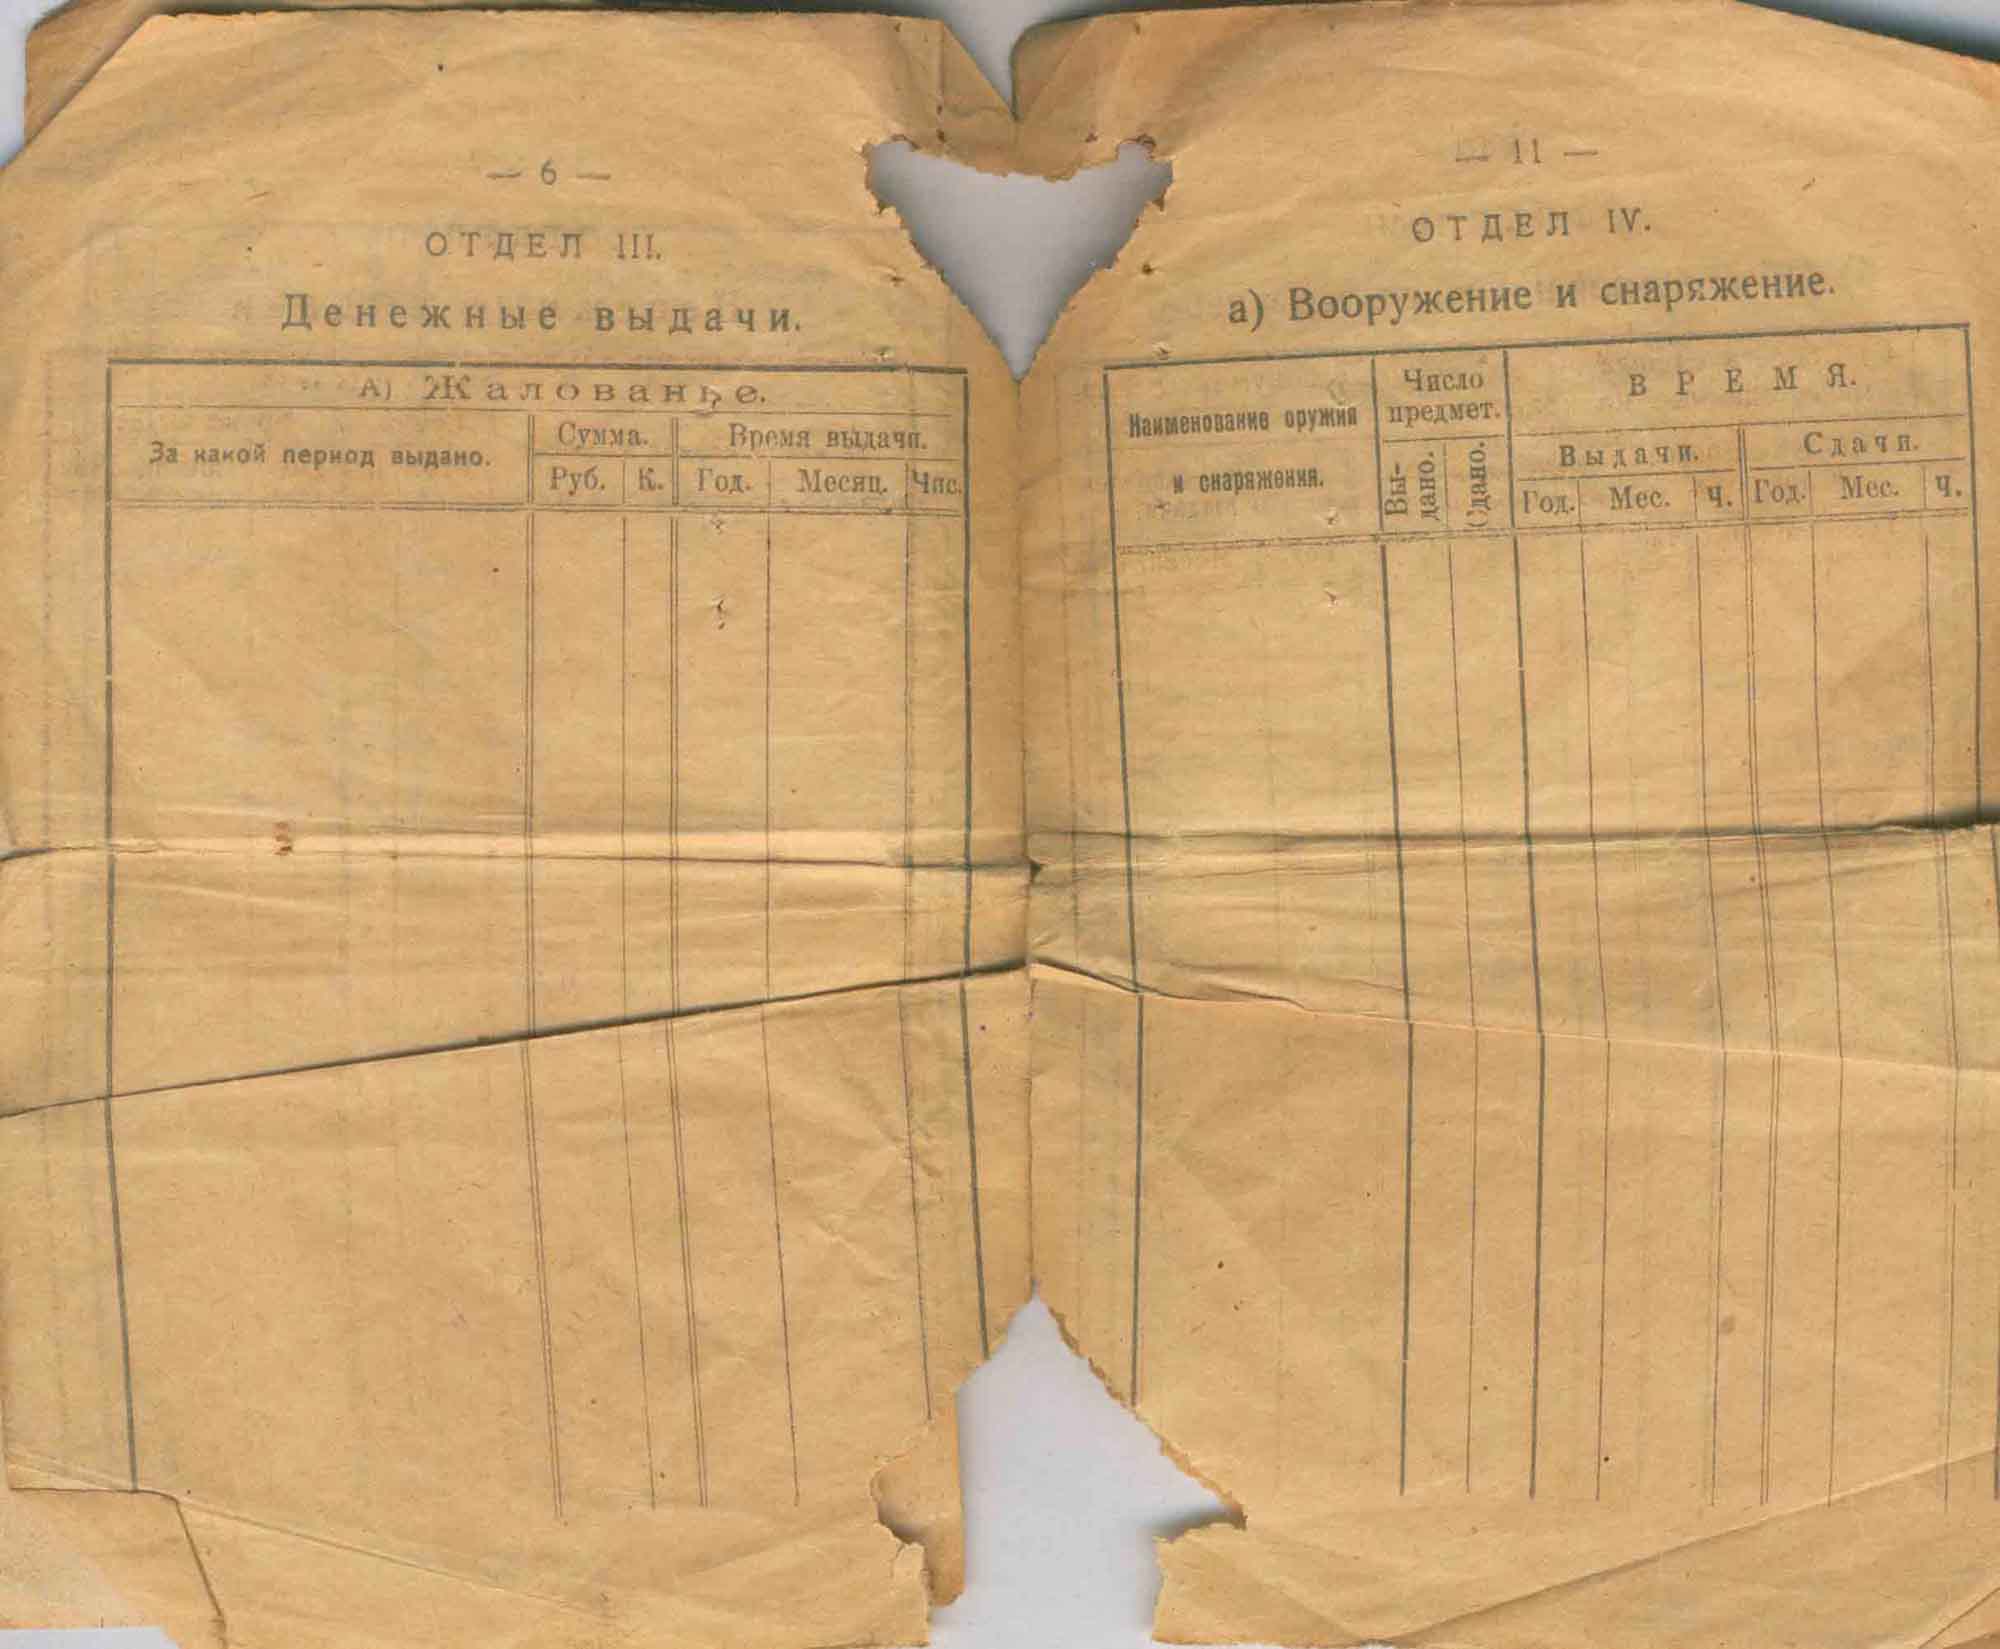 — 6 —
ОТДЕЛ III.
Денежные выдачи.
А) Жалованье.
За какой период выдано.
Сумма.
Время выдачи.
Руб.
К.
Год.
Месяц.
Чис.
— 11 —
ОТДЕЛ IV.
а) Вооружение и снаряжение.
Наименование оружия
и снаряжения.
Число
предмет.
Вы-
дано.
Сдано.
ВРЕМЯ.
Выдачи.
Сдачи.
Год.
Мес.
Ч.
Год.
Мес.
Ч.